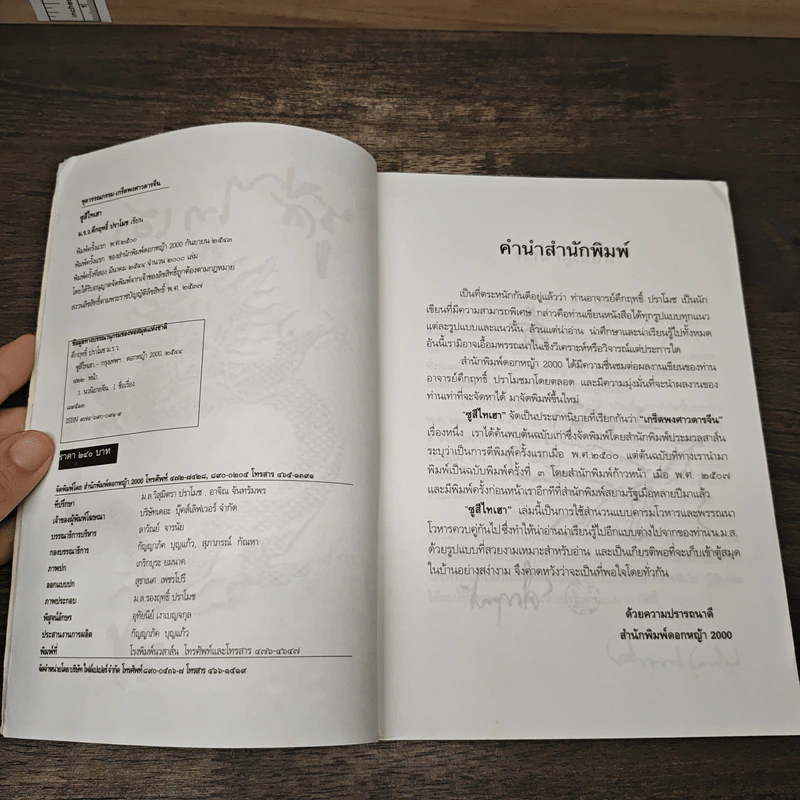 ชุดวรรณกรรม-เกร็ดพงศาวดารจีน
ซูสีไทเฮา
ม.ร.ว.คึกฤทธิ์ ปราโมช เขียน
พิมพ์ครั้งแรก พ.ศ.๒๕๐๐
พิมพ์ครั้งแรก ของสำนักพิมพ์ดอกหญ้า 2000 กันยายน ๒๕๔๓
พิมพ์ครั้งที่สอง มีนาคม ๒๕๔๔ จำนวน ๒๐๐๐ เล่ม
โดยได้รับอนุญาตจัดพิมพ์จากเจ้าของลิขสิทธิ์ถูกต้องตามกฎหมาย
สงวนลิขสิทธิ์ตามพระราชบัญญัติลิขสิทธิ์ พ.ศ. ๒๕๓๗
ข้อมูลทางบรรณานุกรมของหอสมุดแห่งชาติ
คึกฤทธิ์ ปราโมช ม.ร.ว.
ซูสีไทเฮา.-- กรุงเทพฯ : ดอกหญ้า 2000, ๒๕๔๔
หน้า.
1. นวนิยายจีน. I. ชื่อเรื่อง.
ISBN
ราคา ๒๔๐ บาท
จัดพิมพ์โดย สำนักพิมพ์ดอกหญ้า 2000 โทรศัพท์ ๔๗๒-๗๔๒๘, ๘๙๐-๐๒๐๔ โทรสาร ๔๖๕-๑๓๙๑
ที่ปรึกษา ม.ล.วิสุมิตรา ปราโมช , อาจิณ จันทรัมพร
เจ้าของผู้พิมพ์โฆษณา บริษัทเดอะ บุ๊คส์เลิฟเวอร์ จำกัด
บรรณาธิการบริหาร ลาวัณย์ จารนัย
กองบรรณาธิการ กัญญาภัค บุญแก้ว, สุภาภรณ์ กัณหา
ภาพปก เกริกบุระ ยมนาค
ออกแบบปก สุชาเนศ เพชรโปรี
ภาพประกอบ ม.ล.รองฤทธิ์ ปราโมช
พิสูจน์อักษร อุทัยนีย์ เงาเบญจกุล
ประสานงานการผลิต กัญญาภัค บุญแก้ว
พิมพ์ที่ โรงพิมพ์นวสาส์น โทรศัพท์และโทรสาร ๔๗๖-๔๖๔๗
จัดจำหน่ายโดย บริษัท ไฟล์เปเปอร์ จำกัด โทรศัพท์ ๘๙๐-๐๕๓๖-๗ โทรสาร ๔๖๖-๑๕๑๙
คำนำสำนักพิมพ์
เป็นที่ตระหนักกันดีอยู่แล้วว่า ท่านอาจารย์คึกฤทธิ์ ปราโมช เป็นนัก
เขียนที่มีความสามารถพิเศษ กล่าวคือท่านเขียนหนังสือได้ทุกรูปแบบทุกแนว
แต่ละรูปแบบและแนวนั้น ล้วนแต่น่าอ่าน น่าศึกษาและน่าเรียนรู้ไปทั้งหมด
อันนี้เรามิอาจเอื้อมพรรณนาในเชิงวิเคราะห์หรือวิจารณ์แต่ประการใด
สำนักพิมพ์ดอกหญ้า 2000 ได้มีความชื่นชมต่อผลงานเขียนของท่าน
อาจารย์คึกฤทธิ์ ปราโมชมาโดยตลอด และมีความมุ่งมั่นที่จะนำผลงานของ
ท่านเท่าที่จะจัดหาได้ มาจัดพิมพ์ขึ้นใหม่
"ซูสีไทเฮา" จัดเป็นประเภทนิยายที่เรียกกันว่า "เกร็ดพงศาวดารจีน"
เรื่องหนึ่ง เราได้ค้นพบต้นฉบับเก่าซึ่งจัดพิมพ์โดยสำนักพิมพ์ประมวลสาส์น
ระบุว่าเป็นการตีพิมพ์ครั้งแรกเมื่อ พ.ศ.๒๕๐๐ แต่ต้นฉบับที่ทางเรานำมา
พิมพ์เป็นฉบับพิมพ์ครั้งที่ ๓ โดยสำนักพิมพ์ก้าวหน้า เมื่อ พ.ศ. ๒๕๐๗
และมีพิมพ์ครั้งก่อนหน้าเราอีกที่ที่สำนักพิมพ์สยามรัฐเมื่อหลายปีมาแล้ว
"ซูสีไทเฮา" เล่มนี้เป็นการใช้สำนวนแบบคารมโวหารและพรรณนา
โวหารควบคู่กันไปซึ่งทำให้น่าอ่านน่าเรียนรู้ไปอีกแบบต่างไปจากของท่านน.ม.ส.
ด้วยรูปแบบที่สวยงามเหมาะสำหรับอ่าน และเป็นเกียรติพอที่จะเก็บเข้าตู้สมุด
ในบ้านอย่างสง่างาม จึงคาดหวังว่าจะเป็นที่พอใจโดยทั่วกัน
ด้วยความปรารถนาดี
สำนักพิมพ์ดอกหญ้า 2000